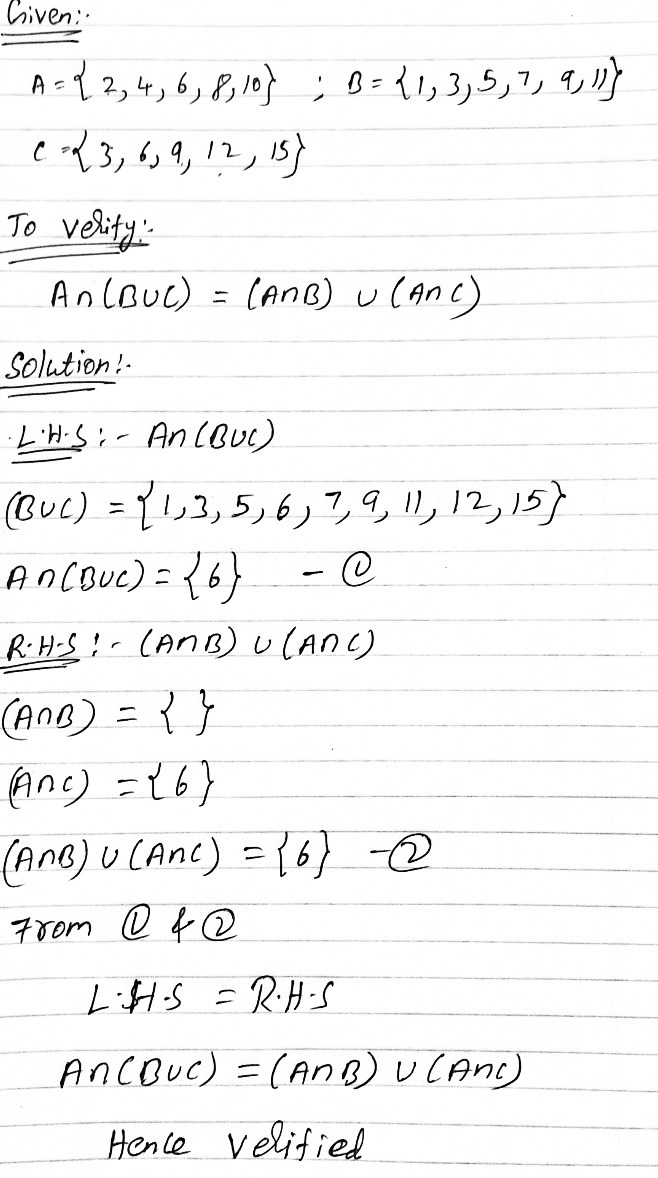 Given:-
A = { 2, 4, 6, 8, 10} ; B = {1, 3, 5, 7, 9, 11}
C = {3, 6, 9, 12, 15}
To verify:-
A∩(B∪C) = (A∩B) ∪ (A∩C)
Solution:-
L.H.S :- A∩(B∪C)
(B∪C) = {1, 3, 5, 6, 7, 9, 11, 12, 15}
A∩(B∪C) = {6} - ①
R.H.S :- (A∩B) ∪ (A∩C)
(A∩B) = { }
(A∩C) = {6}
(A∩B) ∪ (A∩C) = {6} - ②
From ① & ②
L.H.S = R.H.S
A∩(B∪C) = (A∩B) ∪ (A∩C)
Hence Verified